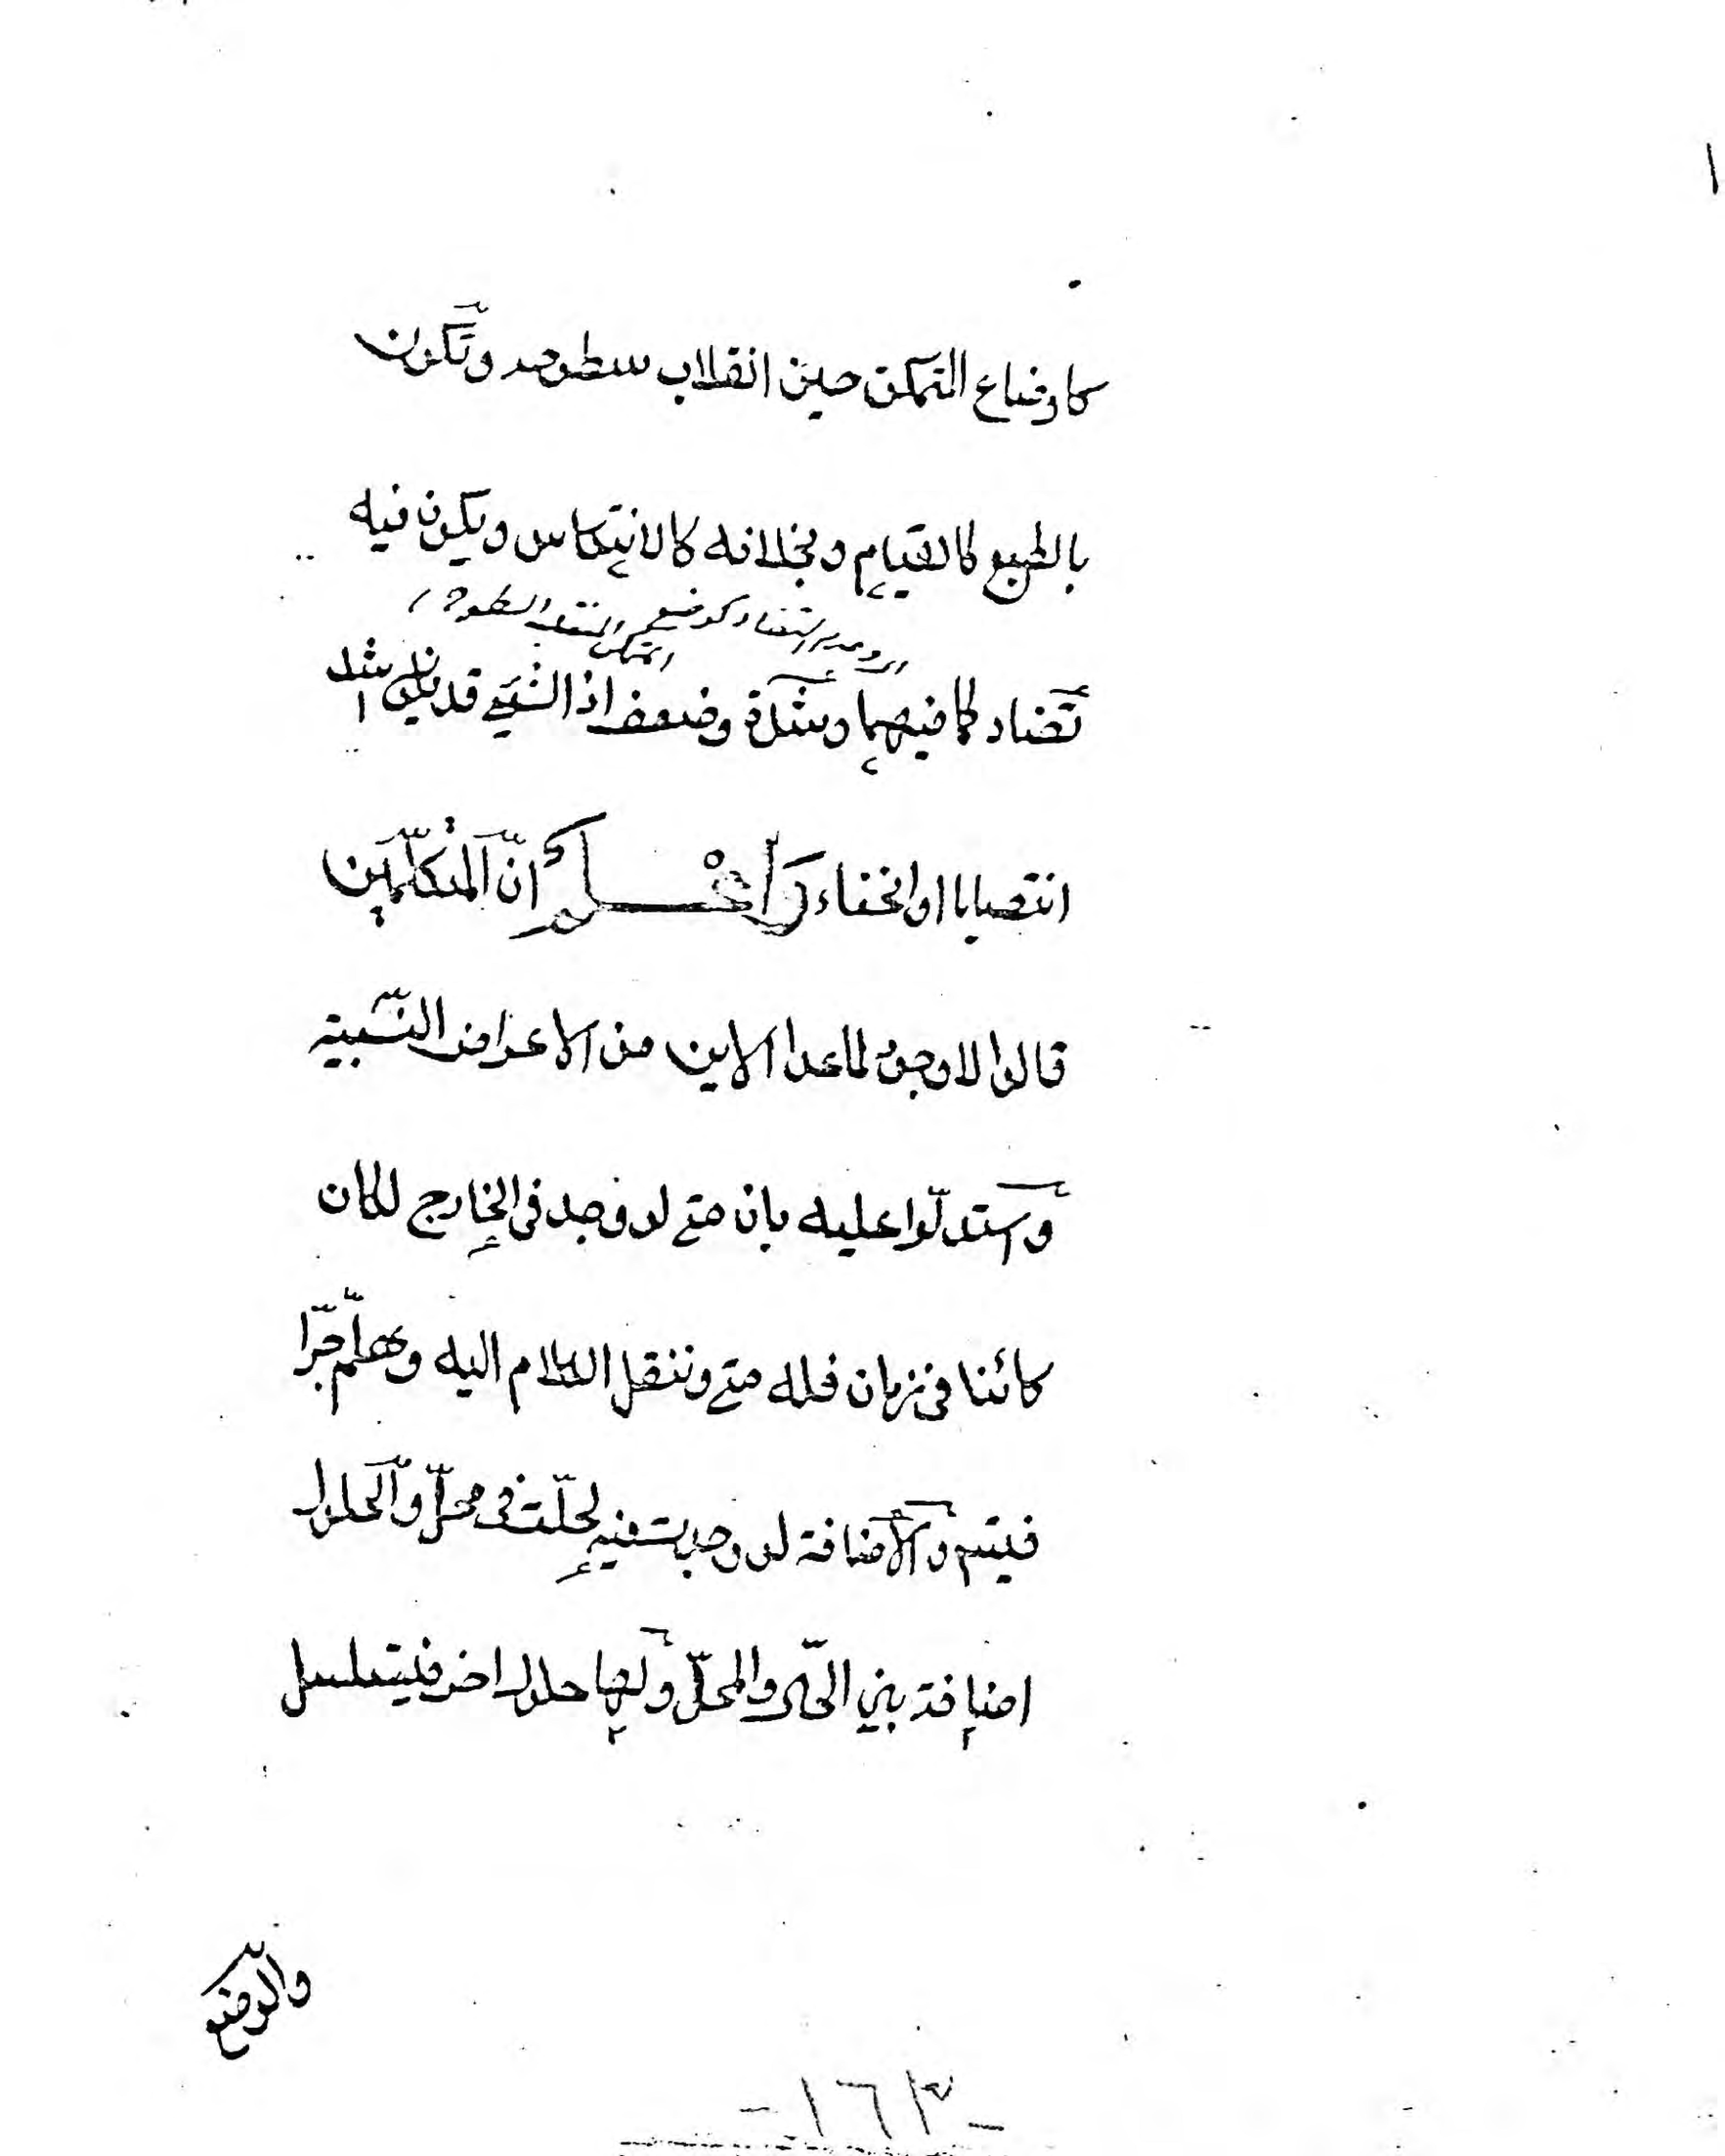 كاوضاع المتمكن حين انقلاب سطوحه وتكون
بالطبع كالقيام وبخلافه كالانتكاس ويكون فيه
تضاد كما فيهما وشدة وضعف اذ الشيء قد يكون اشد
انتصابا او انحناء واعلم ان المتكلمين
قالوا لا وجود لما عدا الاين من الاعراض النسبية
واستدلوا عليه بان متى لو وجد في الخارج لكان
كائنا في زمان فله متى وننقل الكلام اليه وهلم جرا
فيتسم والاضافة لو وجدت فيه لحلت في محل والحلول
اضافة بين الحال والمحل ولها حلول اخر فيتسلسل
والوضع
-١٦٣-